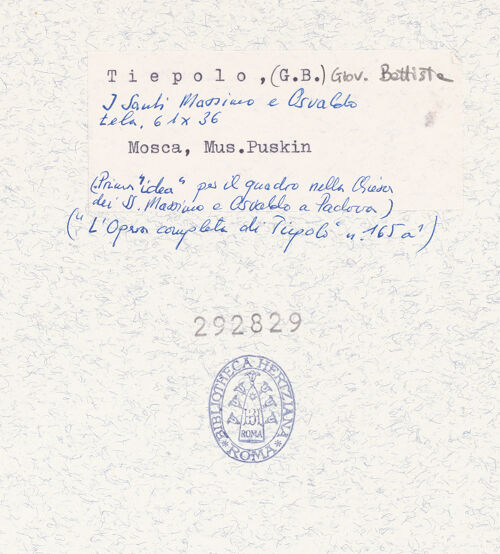 Tiepolo, (G.B.) Giov. Battista
I Santi Massimo e Osvaldo
tela, 61x36
Mosca, Mus.Puskin
(Prima "idea" per il quadro nella Chiesa
dei SS. Massimo e Osvaldo a Padova)
("L'Opera completa di Tiepolo" n. 165 a¹)
292829
BIBLIOTHECA HERTZIANA
ROMA
ROMA